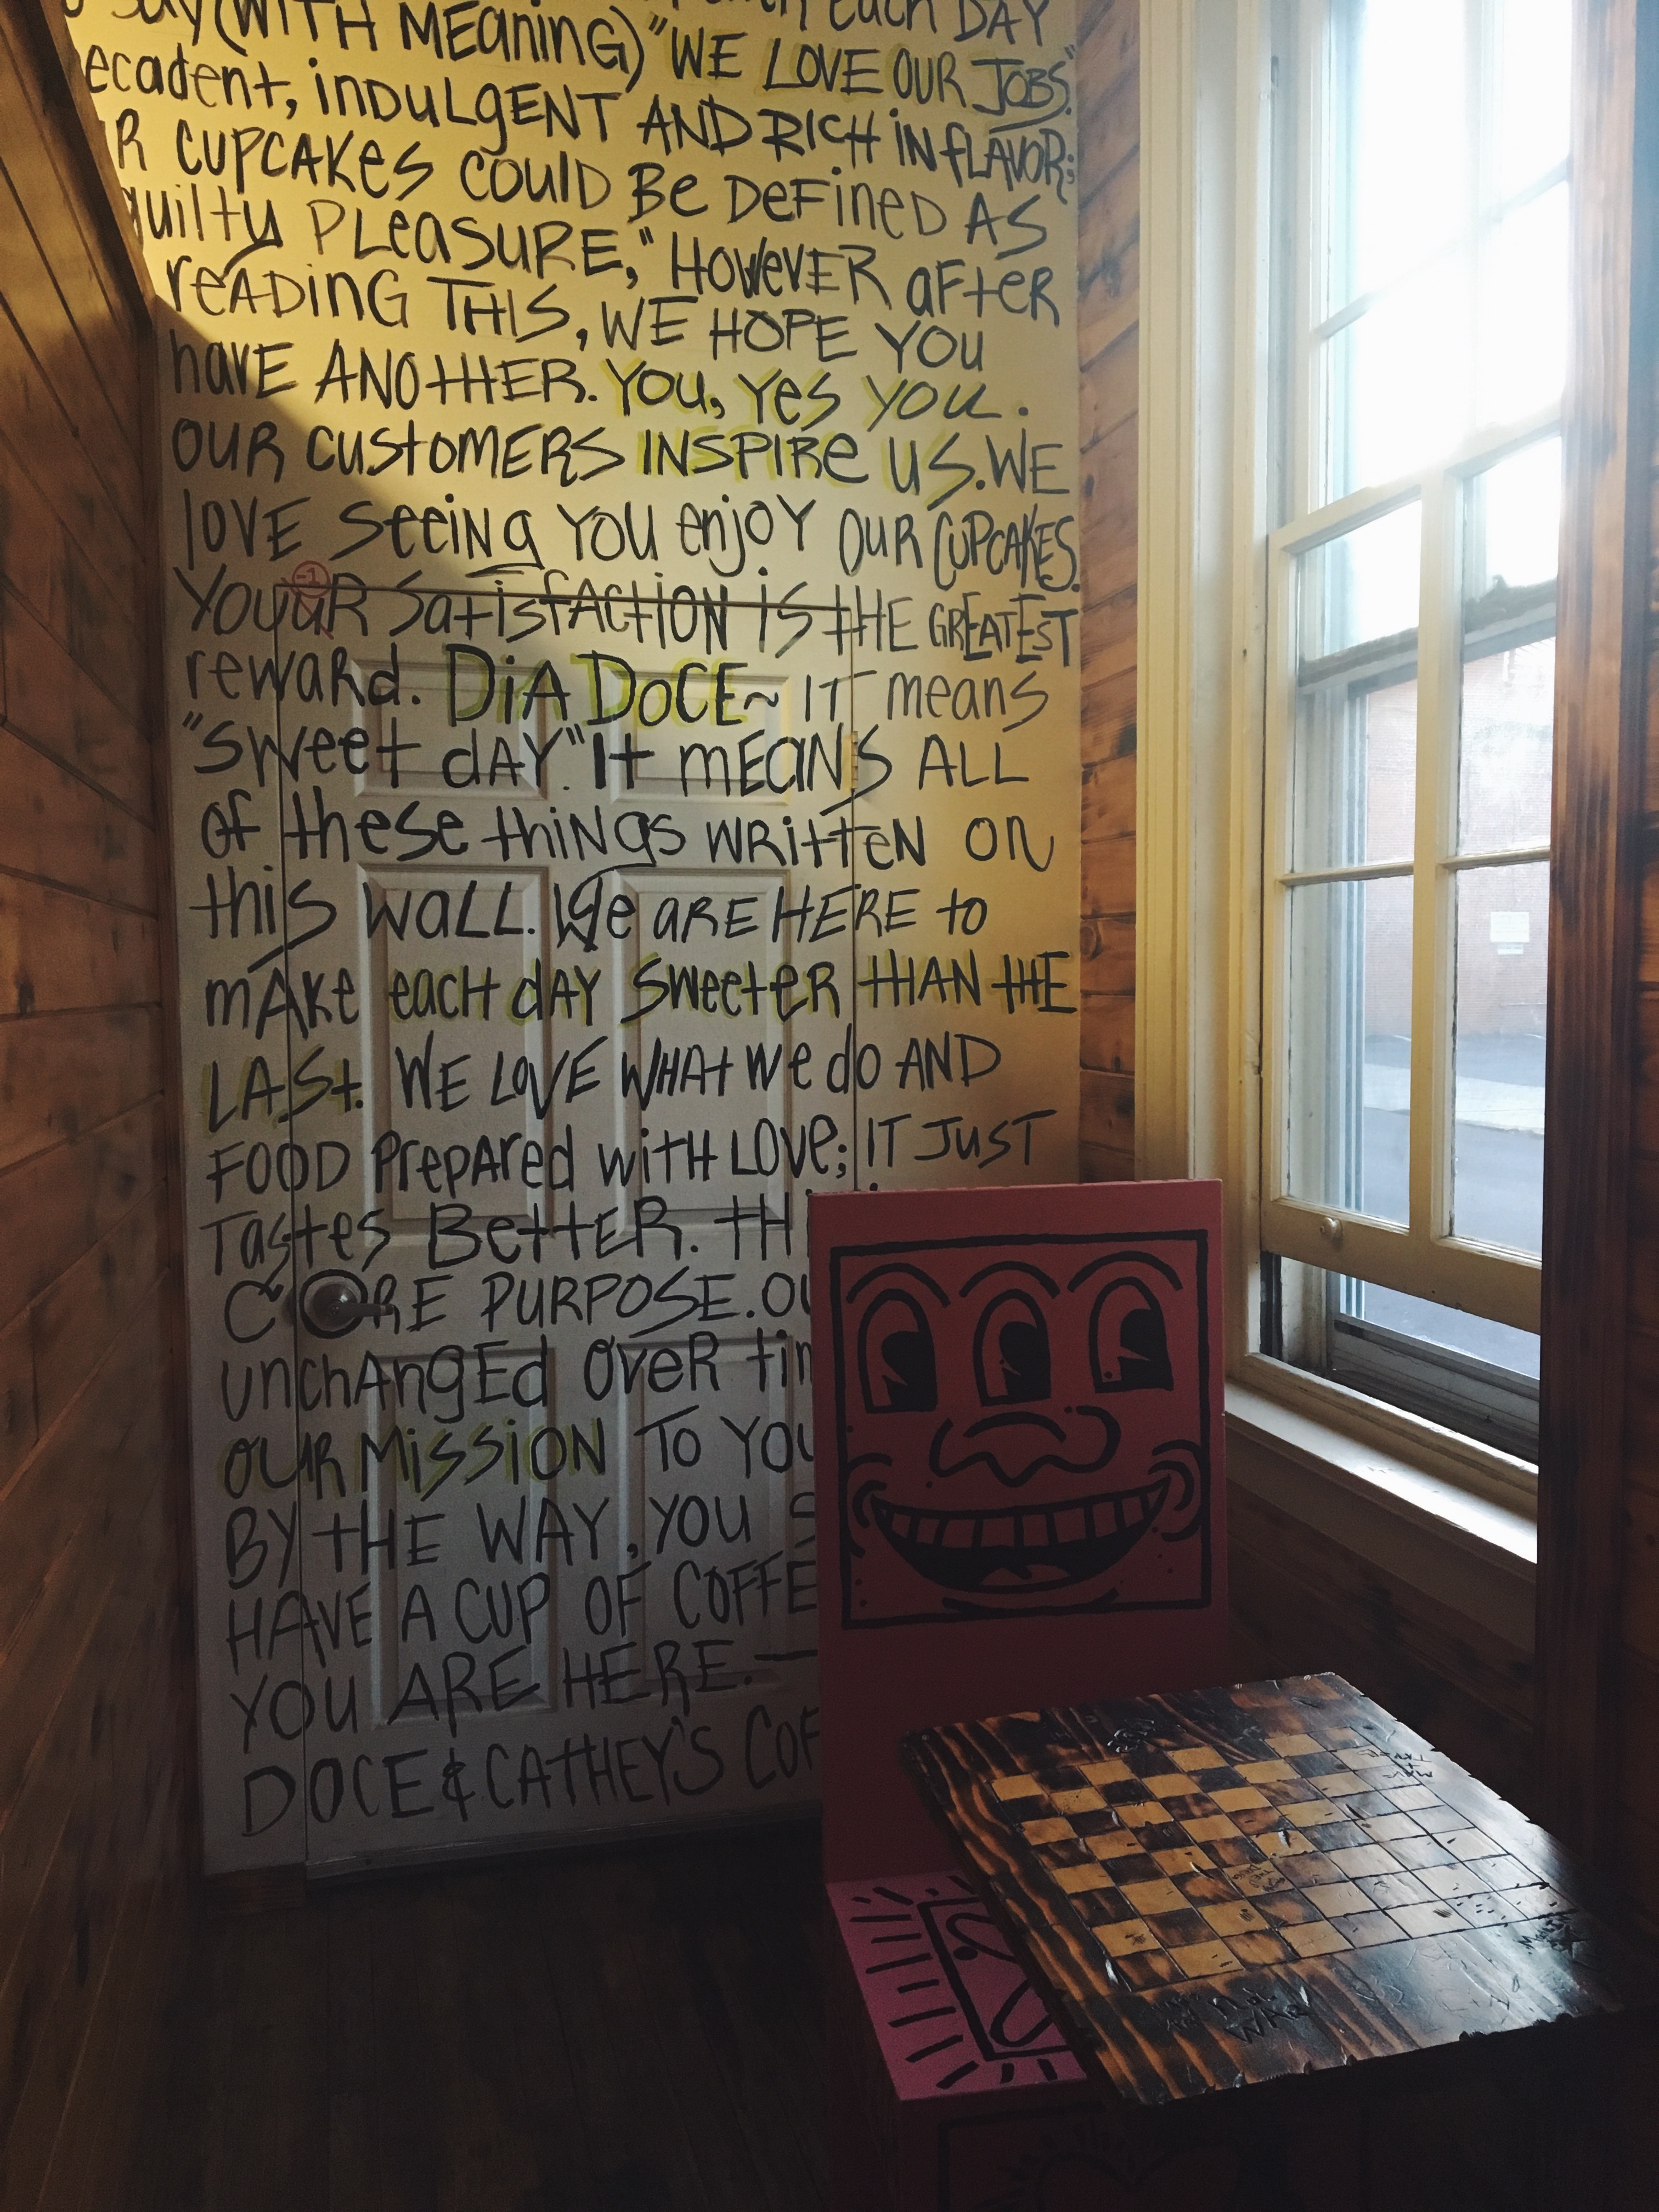 SAY (WITH MEANING) "WE LOVE OUR JOBS."
INDULGENT AND RICH IN FLAVOR;
CUPCAKES COULD BE DEFINED AS
guilty PLEASURE," HOWEVER AFTER
READING THIS, WE HOPE YOU
have ANOTHER. YOU, Yes YOU.
OUR CUSTOMERS INSPIRE US. WE
LOVE Seeing YOU enjoy OUR CUPCAKES.
-1
YouuR SatisfACTION is tHE GREATEST
reward. DiA DOCE~ IT means
"Sweet dAY." It mEANS ALL
Of these thiNgs WRittEN ON
this WALL. We ARE HERE to
mAke each dAY Sweeter tHAN tHE
LASt. WE LOVE WHAt We do AND
FOOD PrepAred witH LOVe; IT JUST
Tastes BettER.
CORE PURPOSE.
unchAngEd OveR
OUR MissiON TO
BY tHE WAY, YOU
HAVE A CUP OF
YOU ARE HERE. —
DOCE & CAtHEY'S